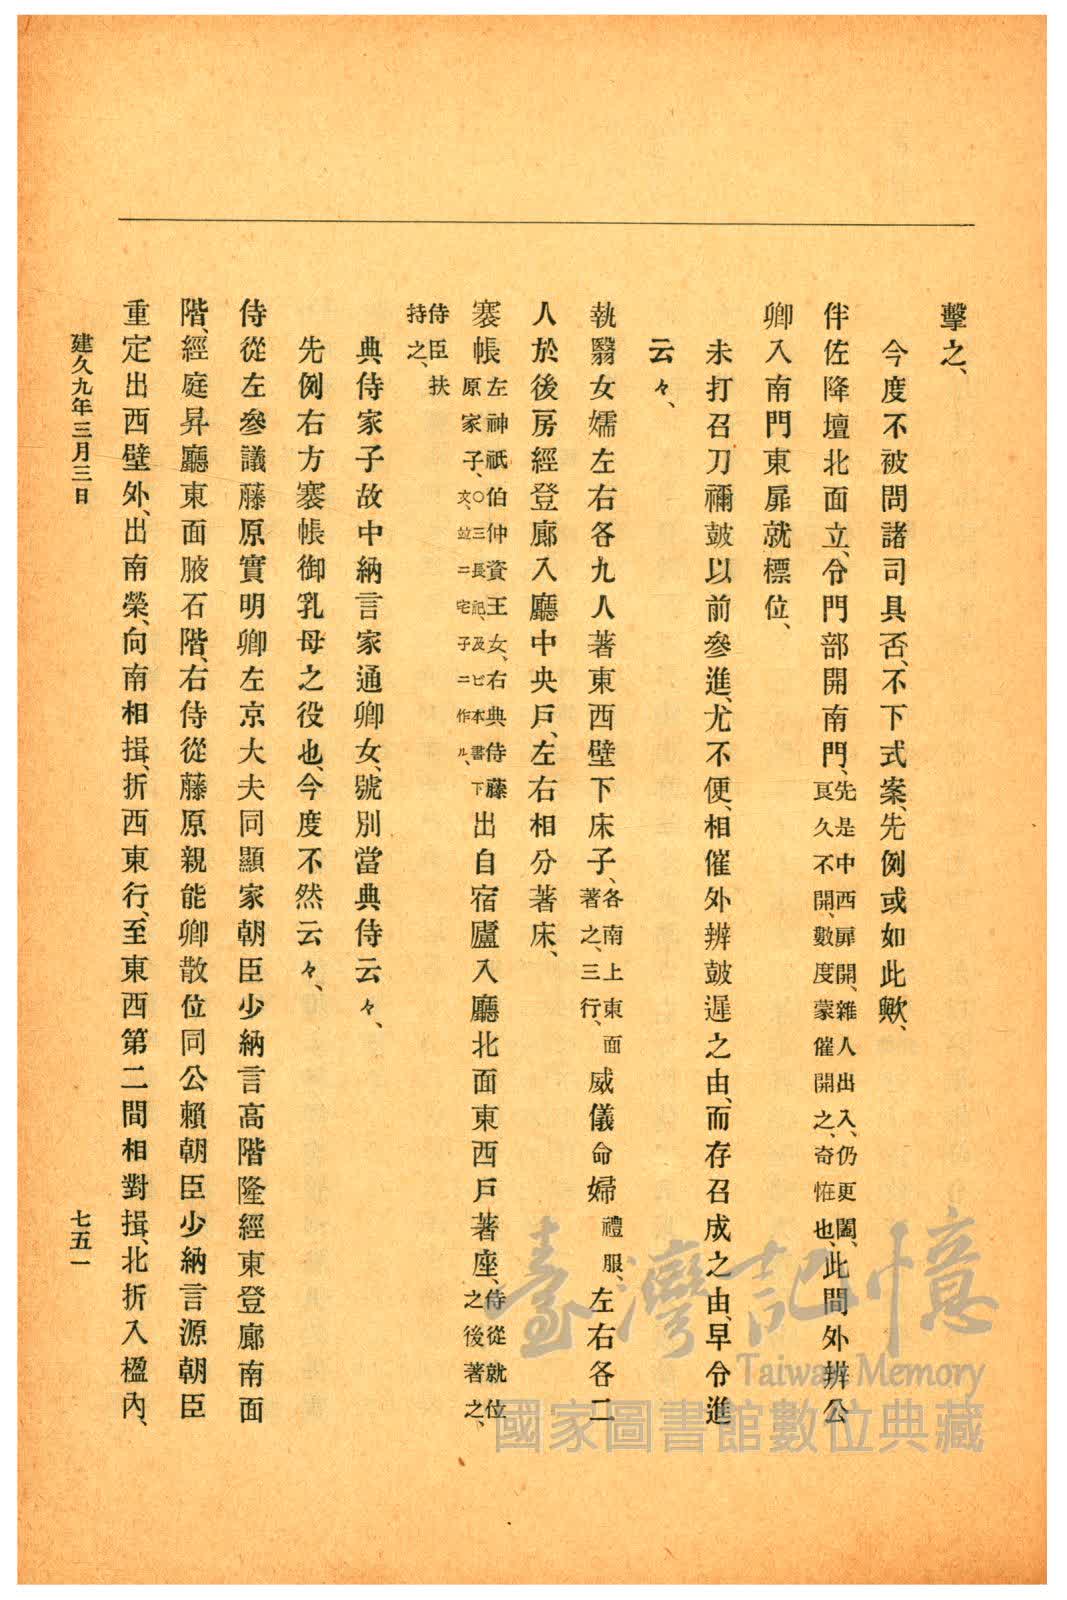 擊之、
今度不被問諸司具否、不下式案、先例或如此歟、
伴佐降壇北面立、令門部開南門、先是中西扉開、雜人出入、仍更闔、此間外辨公
良久不開、數度蒙催開之、奇恠也、
卿入南門東扉就標位、
未打召刀禰鼓以前參進、尤不便、相催外辨鼓遲之由、而存召成之由、早令進
云々、
執翳女嬬左右各九人著東西壁下床子、各南上東面著之、三行、威儀命婦禮服、左右各二
人於後房經登廊入廳中央戶、左右相分著床、
褰帳左神祇伯仲資王女、右典侍藤原家子、○三長記、及ビ本書下文、竝ニ宅子ニ作ル、出自宿廬入廳北面東西戶著座、侍從就位之後著之、
侍臣扶持之、
典侍家子故中納言家通卿女、號別當典侍云々、
先例右方褰帳御乳母之役也、今度不然云々、
侍從左參議藤原實明卿左京大夫同顯家朝臣少納言高階隆經東登廊南面
階、經庭昇廳東面腋石階、右侍從藤原親能卿散位同公賴朝臣少納言源朝臣
重定出西壁外、出南榮、向南相揖、折西東行、至東西第二間相對揖、北折入楹內、
建久九年三月三日
七五一
臺灣記憶
Taiwan Memory
國家圖書館數位典藏